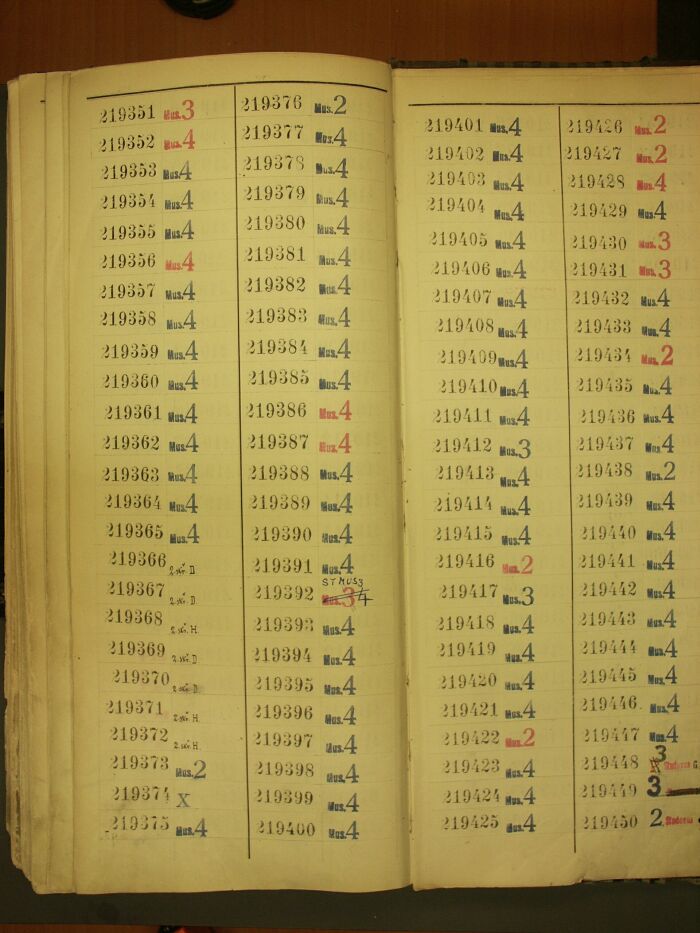 219351 Mus.3
219352 Mus.4
219353 Mus.4
219354 Mus.4
219355 Mus.4
219356 Mus.4
219357 Mus.4
219358 Mus.4
219359 Mus.4
219360 Mus.4
219361 Mus.4
219362 Mus.4
219363 Mus.4
219364 Mus.4
219365 Mus.4
219366
219367
219368
219369
219370
219371
219372
219373 Mus.2
219374 X
219375 Mus.4
219376 Mus.2
219377 Mus.4
219378 Mus.4
219379 Mus.4
219380 Mus.4
219381 Mus.4
219382 Mus.4
219383 Mus.4
219384 Mus.4
219385 Mus.4
219386 Mus.4
219387 Mus.4
219388 Mus.4
219389 Mus.4
219390 Mus.4
219391 Mus.4
ST MUS3
219392 Mus.3
219393 Mus.4
219394 Mus.4
219395 Mus.4
219396 Mus.4
219397 Mus.4
219398 Mus.4
219399 Mus.4
219400 Mus.4
219401 Mus.4
219402 Mus.4
219403 Mus.4
219404 Mus.4
219405 Mus.4
219406 Mus.4
219407 Mus.4
219408 Mus.4
219409 Mus.4
219410 Mus.4
219411 Mus.4
219412 Mus.3
219413 Mus.4
219414 Mus.4
219415 Mus.4
219416 Mus.2
219417 Mus.3
219418 Mus.4
219419 Mus.4
219420 Mus.4
219421 Mus.4
219422 Mus.2
219423 Mus.4
219424 Mus.4
219425 Mus.4
219426 Mus.2
219427 Mus.2
219428 Mus.4
219429 Mus.4
219430 Mus.3
219431 Mus.3
219432 Mus.4
219433 Mus.4
219434 Mus.2
219435 Mus.4
219436 Mus.4
219437 Mus.4
219438 Mus.2
219439 Mus.4
219440 Mus.4
219441 Mus.4
219442 Mus.4
219443 Mus.4
219444 Mus.4
219445 Mus.4
219446 Mus.4
219447 Mus.4
219448 3
219449 3
219450 2